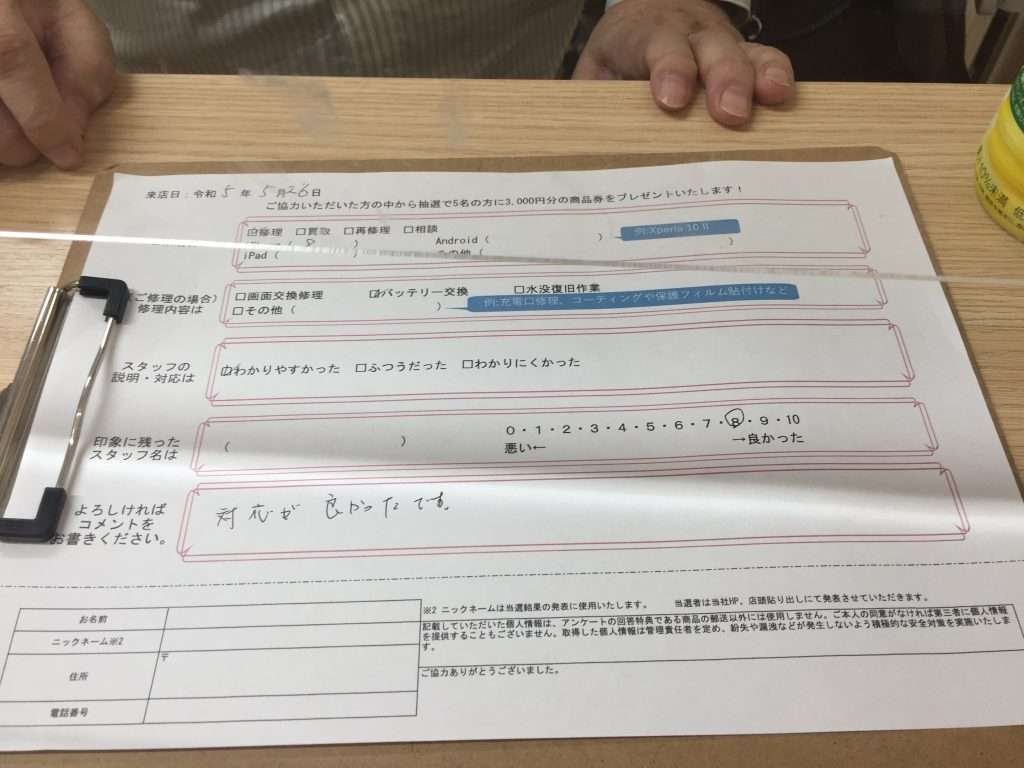 来店日：令和 5 年 5 月 26 日
ご協力いただいた方の中から抽選で5名の方に3,000円分の商品券をプレゼントいたします！
☑修理 □買取 □再修理 □相談
( 8 ) Android ( ) 例:Xperia 10 II
iPad ( ) その他 ( )
(ご修理の場合)
修理内容は
□画面交換修理 ☑バッテリー交換 □水没復旧作業
□その他 ( ) 例:充電口修理、コーティングや保護フィルム貼付けなど
スタッフの
説明・対応は
☑わかりやすかった □ふつうだった □わかりにくかった
印象に残った
スタッフ名は
( )
0・1・2・3・4・5・6・7・8・9・10
悪い← →良かった
よろしければ
コメントを
お書きください。
対応が 良かったです。
お名前
ニックネーム※2
住所
〒
電話番号
※2 ニックネームは当選結果の発表に使用いたします。 当選者は当社HP、店頭貼り出しにて発表させていただきます。
記載していただいた個人情報は、アンケートの回答特典である商品の郵送以外には使用しません。ご本人の同意がなければ第三者に個人情報
を提供することもございません。取得した個人情報は管理責任者を定め、紛失や漏洩などが発生しないよう積極的な安全対策を実施いたしま
す。
ご協力ありがとうございました。